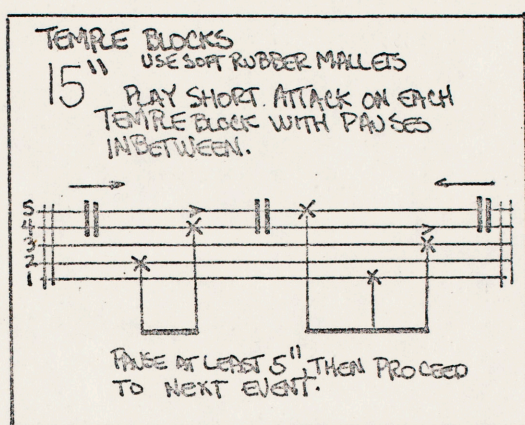 TEMPLE BLOCKS
USE SOFT RUBBER MALLETS
15"
PLAY SHORT ATTACK ON EACH
TEMPLE BLOCK WITH PAUSES
INBETWEEN.
5
4
3
2
1
PAUSE AT LEAST 5", THEN PROCEED
TO NEXT EVENT.